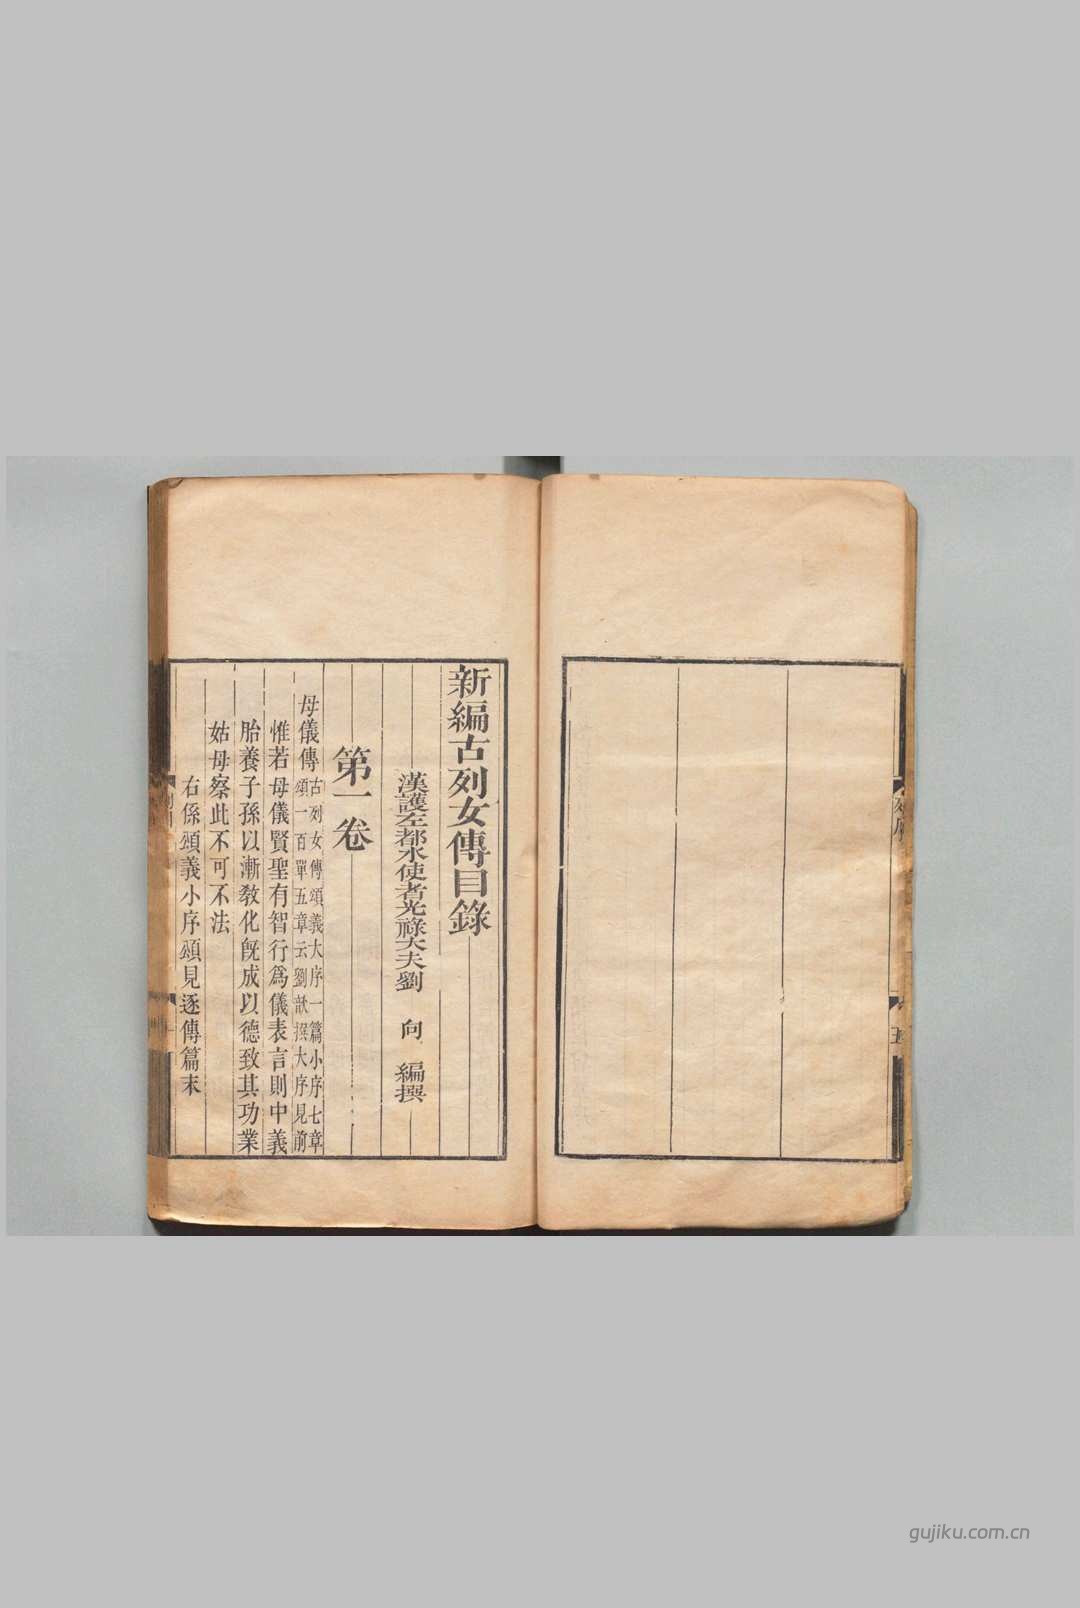 五
新編古列女傳目錄
漢護左都水使者光祿大夫劉 向 編撰
第一卷
母儀傳 古列女傳頌義大序一篇小序七章
頌一百單五章云劉歆撰大序見前
惟若母儀賢聖有智行爲儀表言則中義
胎養子孫以漸教化旣成以德致其功業
姑母察此不可不法
右係頌義小序頌見逐傳篇末
gujiku.com.cn